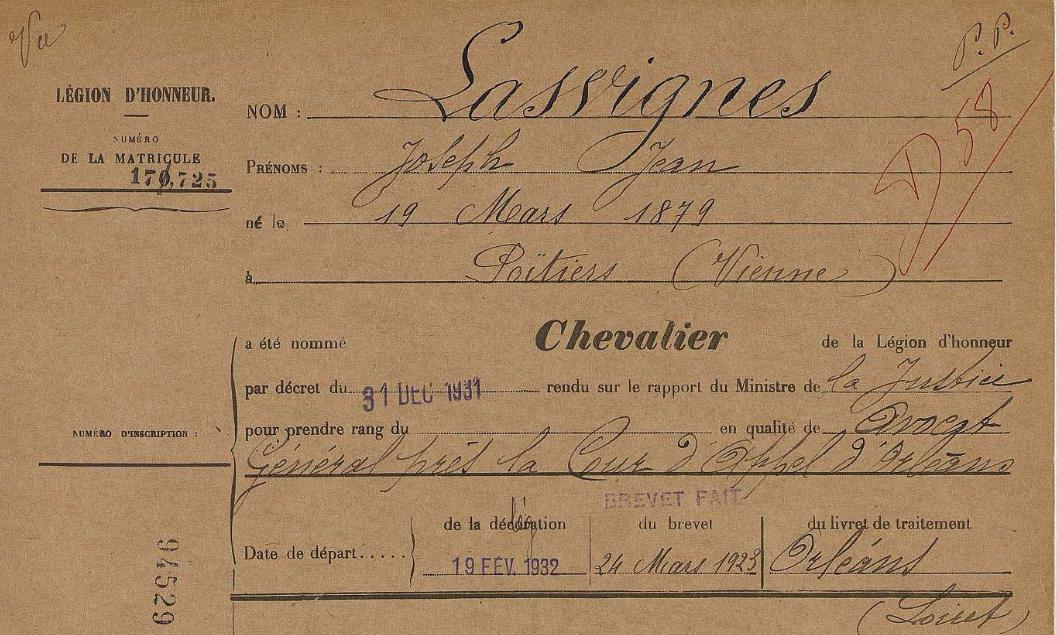 Vu
P.P.
D 58
LÉGION D'HONNEUR.
NUMÉRO
DE LA MATRICULE
170,725
NOM : Lasvignes
PRÉNOMS : Joseph Jean
né le 19 Mars 1879
à Poitiers (Vienne)
a été nommé Chevalier de la Légion d'honneur
par décret du 31 DEC 1931 rendu sur le rapport du Ministre de la Justice
NUMÉRO D'INSCRIPTION :
pour prendre rang du en qualité de Avocat
Général près la Cour d'Appel d'Orléans
BREVET FAIT
Date de départ..... de la décoration du brevet du livret de traitement
19 FEV. 1932 24 Mars 1923 Orléans
(Loiret)
94529